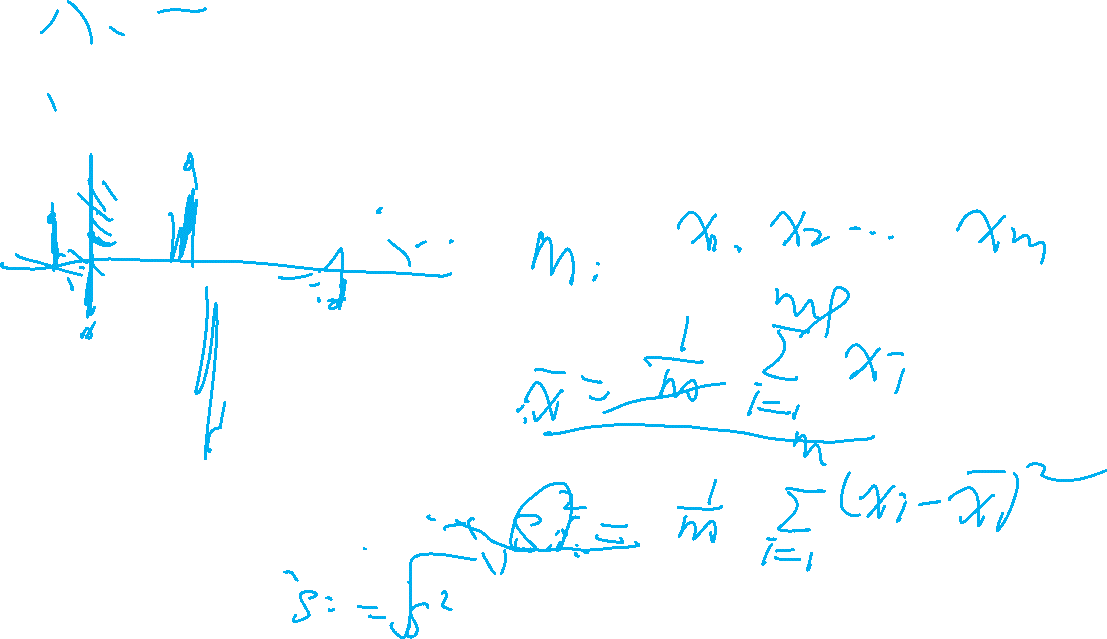 八、一
m: x₁, x₂ ... xₘ
x̄ = 1/m ∑ᵢ₌₁ᵐ xᵢ
s² = 1/m ∑ᵢ₌₁ᵐ (xᵢ - x̄)²
s = √s²